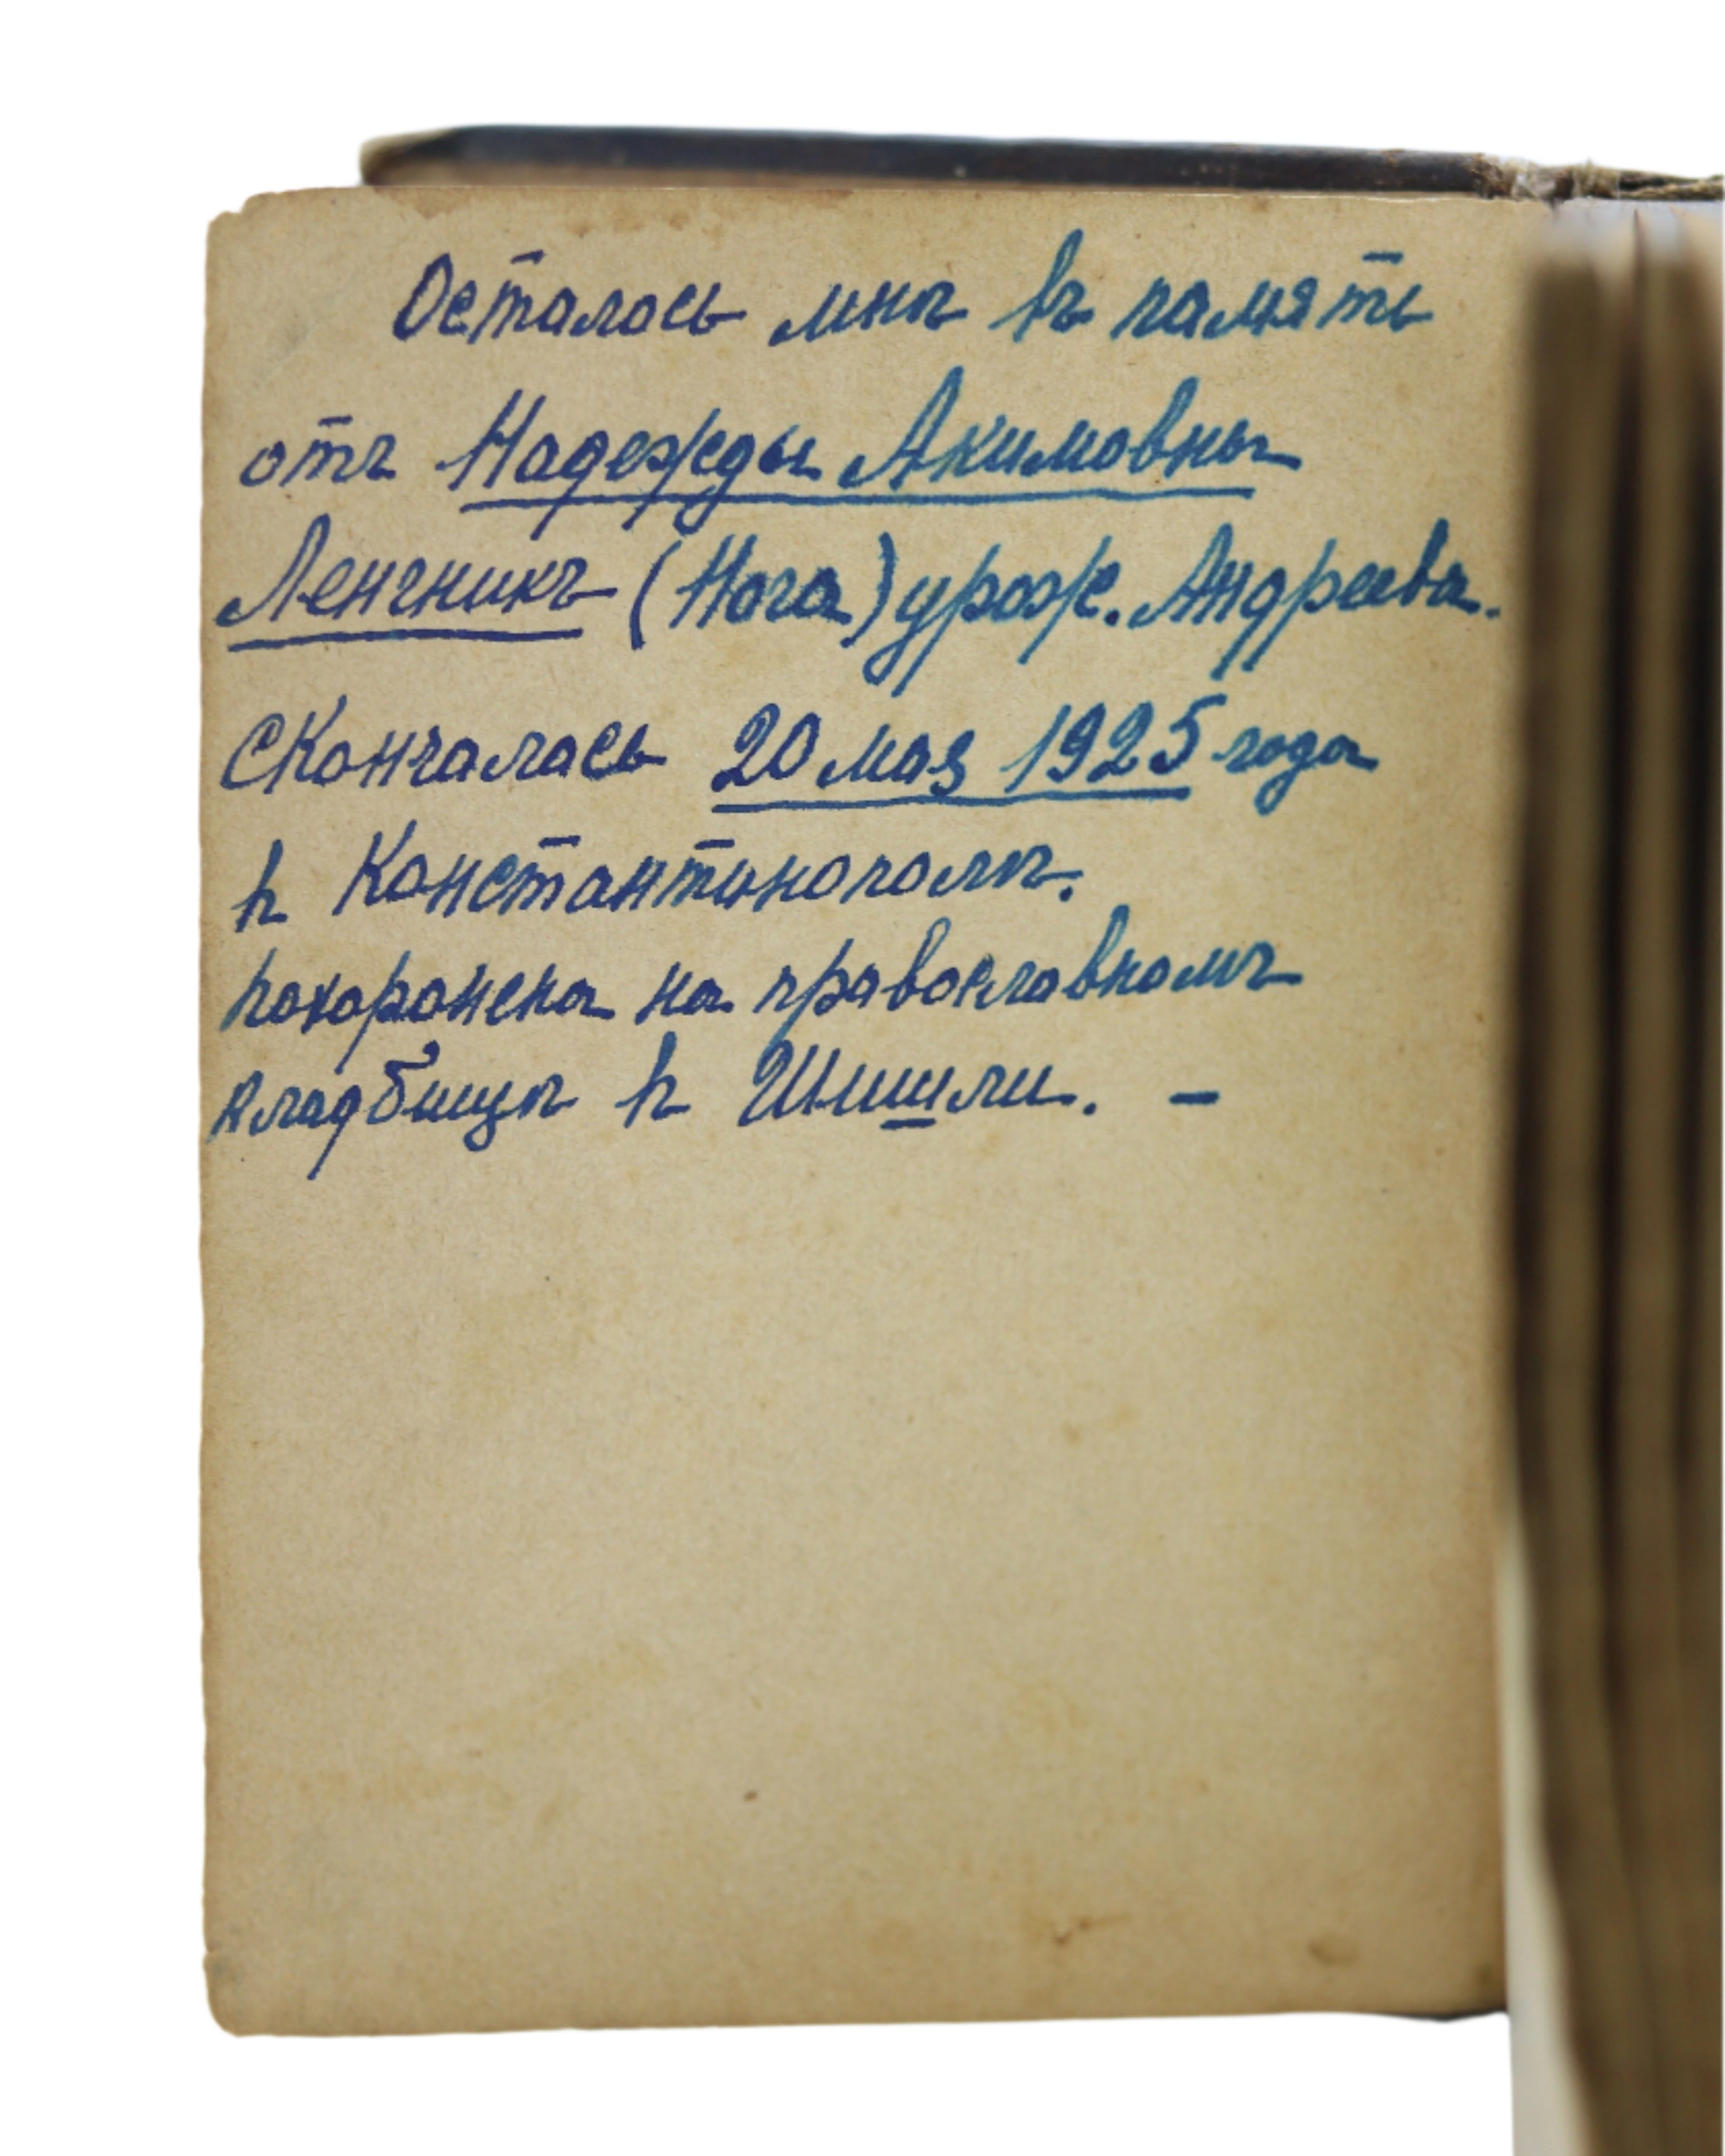 Осталось мнѣ въ память
отъ Надежды Акимовны
Ленгникъ (Нога) урож. Андреева.
Скончалась 20 мая 1925 года
въ Константинополѣ.
похоронена на православномъ
кладбищѣ въ Шишли. –